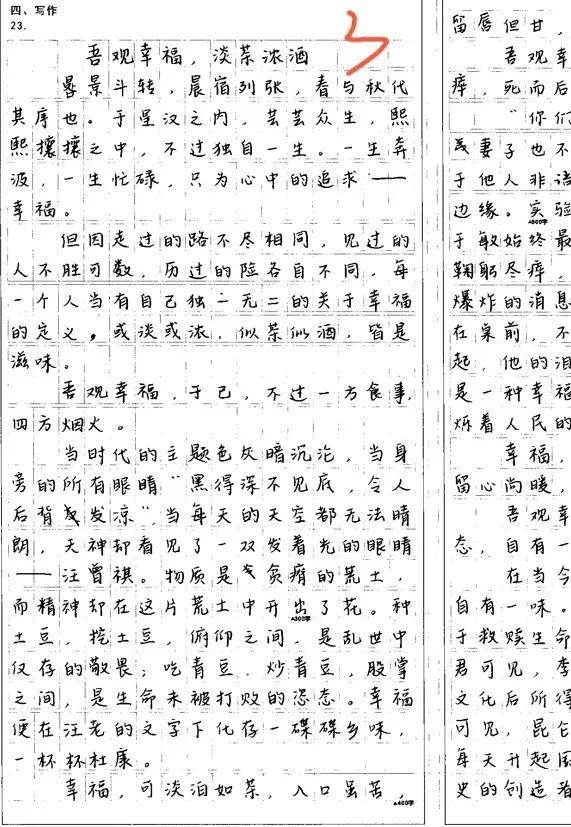 四、写作
23.
吾观幸福，淡茶浓酒
晷景斗转，晨宿列张，春与秋代
其序也。于星汉之内，芸芸众生，熙
熙攘攘之中，不过独自一生。一生奔
波，一生忙碌，只为心中的追求——
幸福。
但因走过的路不尽相同，见过的
人不胜可数，历过的险各自不同，每
一个人当有自己独一无二的关于幸福
的定义，或淡或浓，似茶似酒，皆是
滋味。
吾观幸福，于己，不过一方食事，
四方烟火。
当时代的主题色灰暗沉沦，当身
旁的所有眼睛“黑得深不见底，令人
后背发凉”，当每天的天空都无法晴
朗，天神却看见了一双发着光的眼睛
——汪曾祺。物质是贫瘠的荒土，
而精神却在这片荒土中开出了花。种
▲300字
土豆，挖土豆，俯仰之间，是乱世中
仅存的敬畏；吃青豆，炒青豆，股掌
之间，是生命未被打败的姿态。幸福
便在汪老的文字下化存一碟碟乡味，
一杯杯杜康。
幸福，可淡泊如茶，入口虽苦，
▲400字
留唇但甘，
吾观幸
瘁，死而后
“你们
及妻子也不
于他人非议
边缘。实验
▲500字
于敏始终最
鞠躬尽瘁，
爆炸的消息
在桌前，不
起，他的泪
是一种幸福
烁着人民的
幸福，
留心尚暖，
吾观幸
态，自有一
在当今
自有一味。
于救赎生命
君可见，李
文化后所得
可见，昆仑
每天升起国
史的创造者